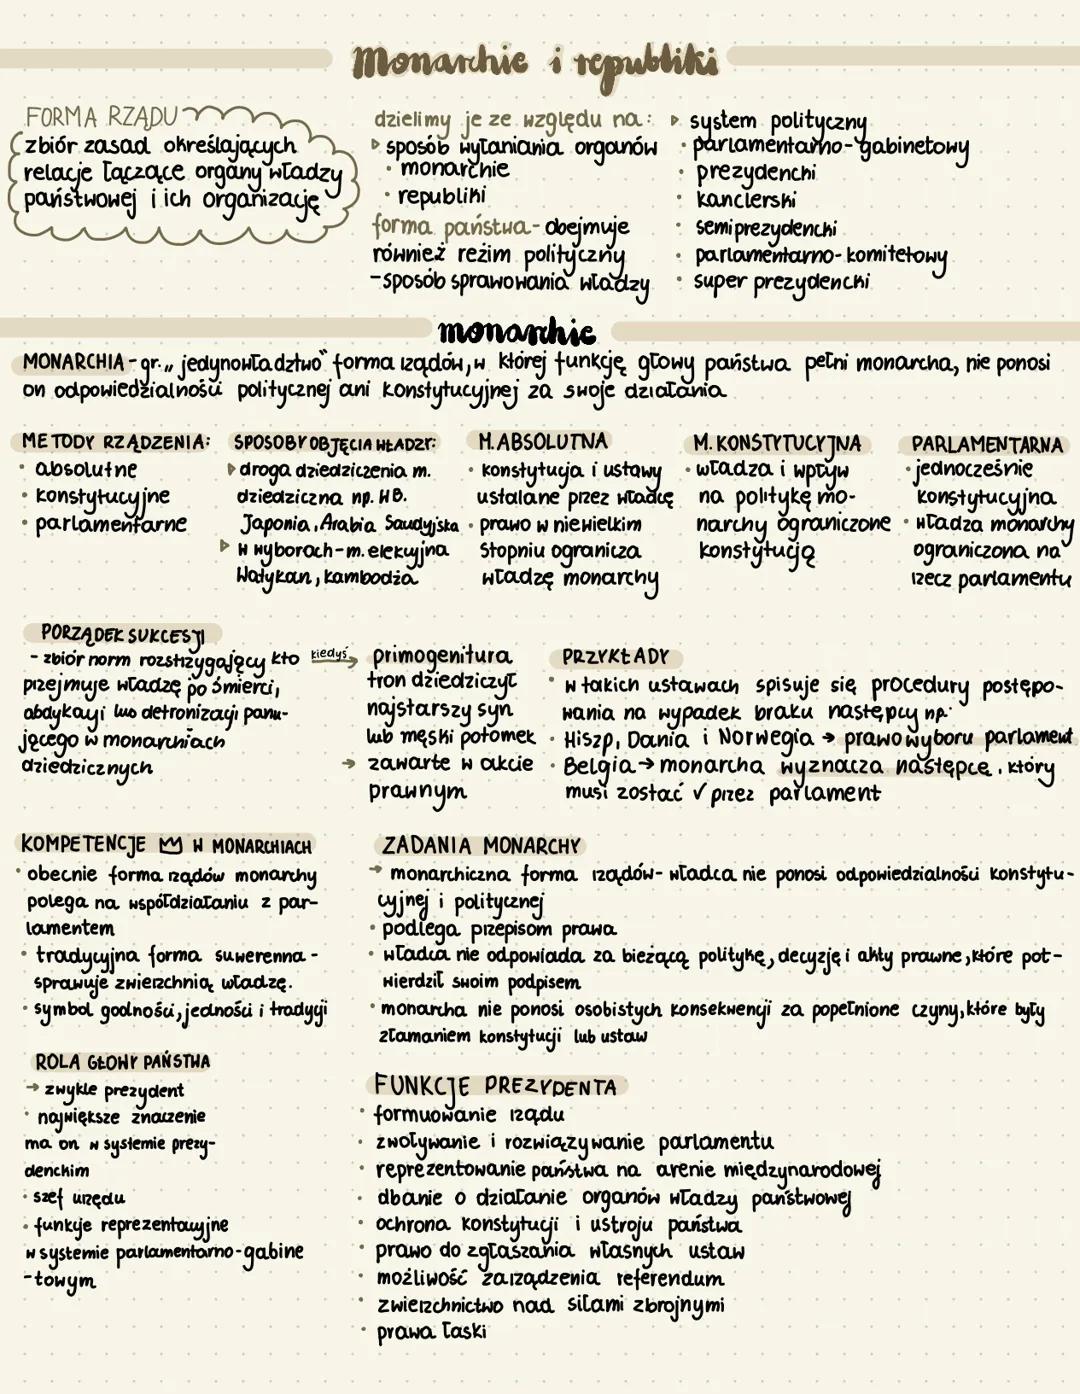 Monarchie i republiki
FORMA RZĄDU
zbiór zasad określających
relacje łączące organy władzy
państwowej i ich organizację
dzielimy je ze względu na:
sposób wyłaniania organów
monarchie
republiki
forma państwa- obejmuje
również reżim polityczny
-sposób sprawowania władzy
system polityczny
parlamentarno-gabinetowy
prezydencki
kanclerski
semiprezydencki
parlamentarno-komitetowy
super prezydencki
monarchie
MONARCHIA - gr. „jedynowładztwo" forma rządów, w której funkcję głowy państwa pełni monarcha, nie ponosi
on odpowiedzialności politycznej ani konstytucyjnej za swoje działania
METODY RZĄDZENIA:
absolutne
konstytucyjne
parlamentarne
SPOSOBY OBJĘCIA WŁADZY:
droga dziedziczenia m.
dziedziczna np. WB.
Japonia, Arabia Saudyjska
w wyborach-m. elekcyjna
Watykan, Kambodża
M. ABSOLUTNA
konstytucja i ustawy
ustalane przez władcę
prawo w niewielkim
stopniu ogranicza
władzę monarchy
M. KONSTYTUCYJNA
władza i wpływ
na politykę mo-
narchy ograniczone
konstytucją
PARLAMENTARNA
jednocześnie
konstytucyjna
władza monarchy
ograniczona na
rzecz parlamentu
PORZĄDEK SUKCESJI
- zbiór norm rozstrzygający kto
przejmuje władzę po śmierci,
abdykacji lub detronizacji panu-
jącego w monarchiach
dziedzicznych
kiedyś
primogenitura
tron dziedziczył
najstarszy syn
lub męski potomek
zawarte w akcie
prawnym
PRZYKŁADY
w takich ustawach spisuje się procedury postępo-
wania na wypadek braku następcy np.
Hiszp, Dania i Norwegia → prawo wyboru parlament
Belgia → monarcha wyznacza następcę, który
musi zostać ✓ przez parlament
KOMPETENCJE W MONARCHIACH
obecnie forma rządów monarchy
polega na współdziałaniu z par-
lamentem
tradycyjna forma suwerenna -
sprawuje zwierzchnią władzę.
symbol godności, jedności i tradycji
ZADANIA MONARCHY
→ monarchiczna forma rządów- władca nie ponosi odpowiedzialności konstytu-
cyjnej i politycznej
podlega przepisom prawa
władca nie odpowiada za bieżącą politykę, decyzję i akty prawne, które pot-
wierdził swoim podpisem
monarcha nie ponosi osobistych konsekwencji za popełnione czyny, które były
złamaniem konstytucji lub ustaw
ROLA GŁOWY PAŃSTWA
→ zwykle prezydent
największe znaczenie
ma on w systemie prezy-
denckim
szef urzędu
funkcje reprezentacyjne
w systemie parlamentarno-gabine
-towym
FUNKCJE PREZYDENTA
formuowanie rządu
zwoływanie i rozwiązywanie parlamentu
reprezentowanie państwa na arenie międzynarodowej
dbanie o działanie organów władzy państwowej
ochrona konstytucji i ustroju państwa
prawo do zgłaszania własnych ustaw
możliwość zarządzenia referendum
zwierzchnictwo nad siłami zbrojnymi
prawa łaski